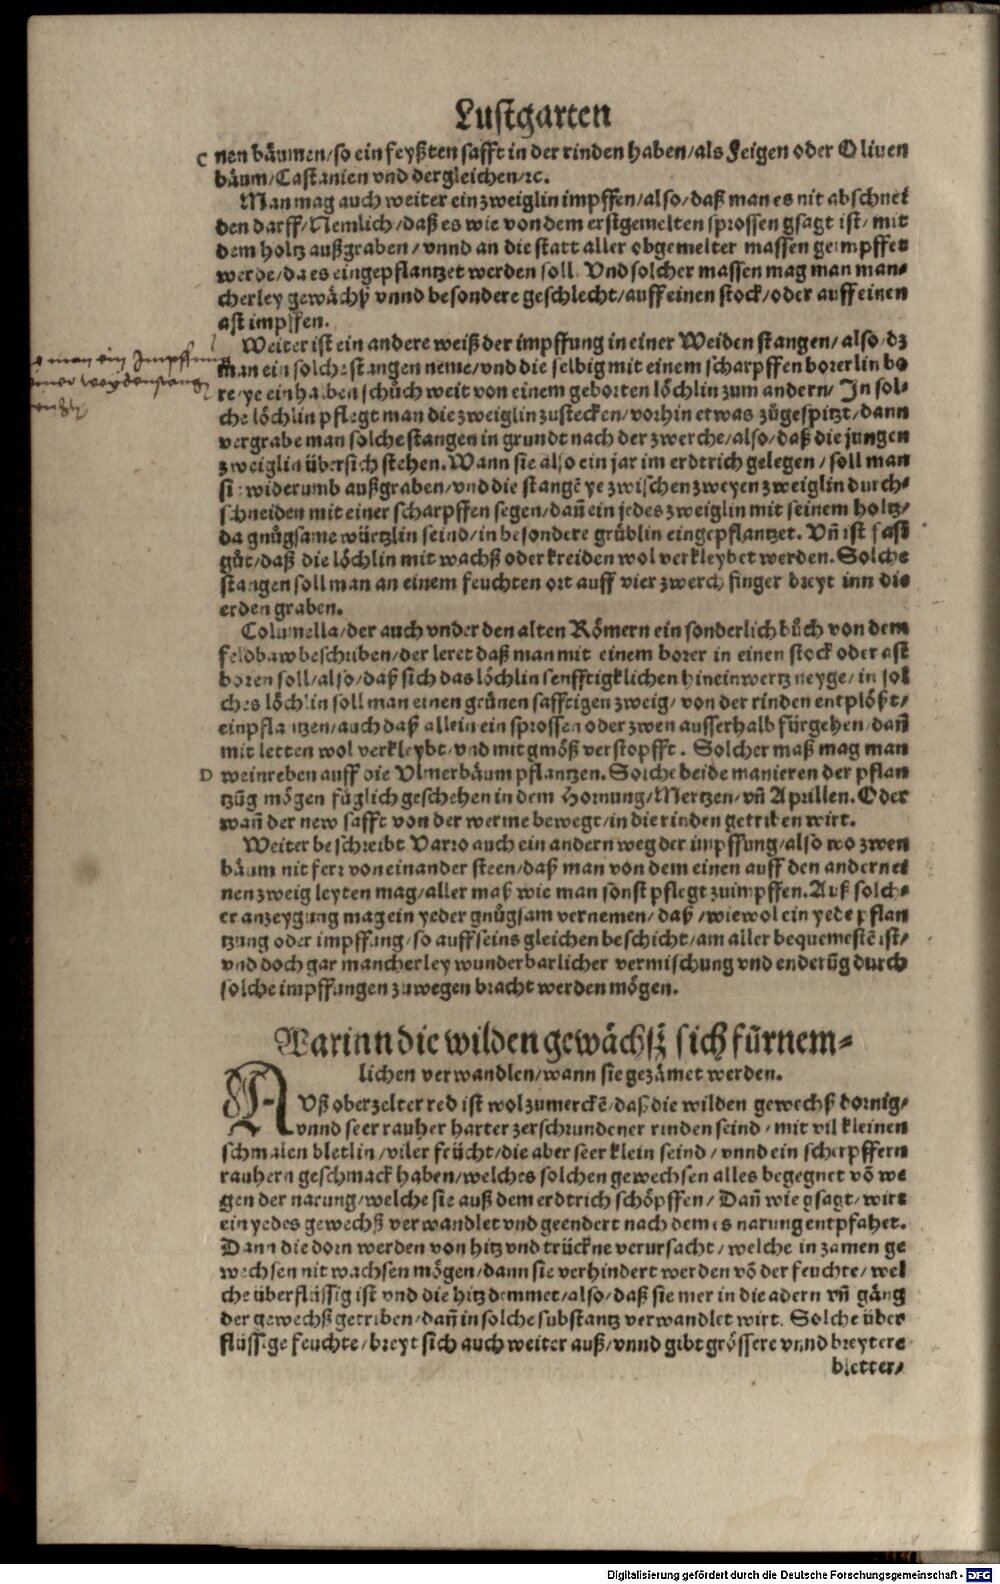 Lustgarten
C nen bäumen/so ein feyßten safft in der rinden haben/als Feigen oder Oliuen
bäum/Castanien vnd dergleichen/ꝛc.
Man mag auch weiter ein zweiglin impffen/also/daß man es nit abschnei
den darff/Nemlich/daß es wie von dem erstgemelten sprossen gsagt ist/mit
dem holtz außgraben/vnnd an die statt aller obgemelter massen geimpffet
werde/da es eingepflantzet werden soll. Vnd solcher massen mag man man⸗
cherley gewächß vnnd besondere geschlecht/auff einen stock/oder auff einen
ast impffen.
Weiter ist ein andere weiß der impffung in einer Weiden stangen/also/dz
man ein solche stangen neme/vnd die selbig mit einem scharpffen borerlin bo
re/ye ein halben schůch weit von einem geborten löchlin zum andern/ In sol⸗
che löchlin pflegt man die zweiglin zustecken/vorhin etwas zůgespitzt/dann
vergrabe man solche stangen in grundt nach der zwerche/also/daß die jungen
zweiglin übersich stehen. Wann sie also ein jar im erdtrich gelegen/soll man
sie widerumb außgraben/vnd die stangẽ ye zwischen zweyen zweiglin durch⸗
schneiden mit einer scharpffen segen/dañ ein jedes zweiglin mit seinem holtz/
da gnůgsame würtzlin seind/in besondere grüblin eingepflantzet. Vñ ist fast
gůt/daß die löchlin mit wachß oder kreiden wol verkleybet werden. Solche
stangen soll man an einem feuchten ort auff vier zwerch finger breyt inn die
erden graben.
Columella/der auch vnder den alten Römern ein sonderlich bůch von dem
feldbaw beschriben/der leret daß man mit einem borer in einen stock oder ast
boren soll/also/daß sich das löchlin senfftigklichen hineinwertz neyge/in sol
ches löchlin soll man einen grünen safftigen zweig/von der rinden entplößt/
einpflantzen/auch daß allein ein sprossen oder zwen ausserhalb fürgehen/dañ
mit letten wol verkleybt/vnd mit gmöß verstopfft. Solcher maß mag man
D weinreben auff die Vlmerbäum pflantzen. Solche beide manieren der pflan
tzũg mögen füglich geschehen in dem Hornung/Mertzen/vñ Aprillen. Oder
wañ der new safft von der werme bewegt/in die rinden getriben wirt.
Weiter beschreibt Varro auch ein andern weg der impffung/also wo zwen
bäum nit ferr von einander steen/daß man von dem einen auff den andern ei
nen zweig leyten mag/aller maß wie man sonst pflegt zuimpffen. Auß solch⸗
er anzeygung mag ein yeder gnůgsam vernemen/daß/wiewol ein yede pflan
tzung oder impffung/so auff seins gleichen beschicht/am aller bequemestẽ ist/
vnd doch gar mancherley wunderbarlicher vermischung vnd enderũg durch
solche impffungen zuwegen bracht werden mögen.
Warinn die wilden gewächß sich fürnem⸗
lichen verwandlen/wann sie gezämet werden.
AVß oberzelter red ist wol zumerckẽ/daß die wilden gewechß dornig/
vnnd seer rauher harter zerschrundener rinden seind/mit vil kleinen
schmalen bletlin/viler frücht/die aber seer klein seind/vnnd ein scherpffern
rauhern geschmack haben/welches solchen gewechsen alles begegnet võ we
gen der narung/welche sie auß dem erdtrich schöpffen/Dañ wie gsagt/wirt
ein yedes gewechß verwandlet vnd geendert nach dem es narung entpfahet.
Dann die dorn werden von hitz vnd trückne verursacht/welche in zamen ge
wechsen nit wachsen mögen/dann sie verhindert werden võ der feuchte/wel
che überflüssig ist vnd die hitz demmet/also/daß sie mer in die adern vñ gäng
der gewechß getriben/dañ in solche substantz verwandlet wirt. Solche über
flüssige feuchte/breyt sich auch weiter auß/vnnd gibt grössere vnnd breytere
bletter/
man ein Impffung
einer weydenstang
Digitalisierung gefördert durch die Deutsche Forschungsgemeinschaft - DFG